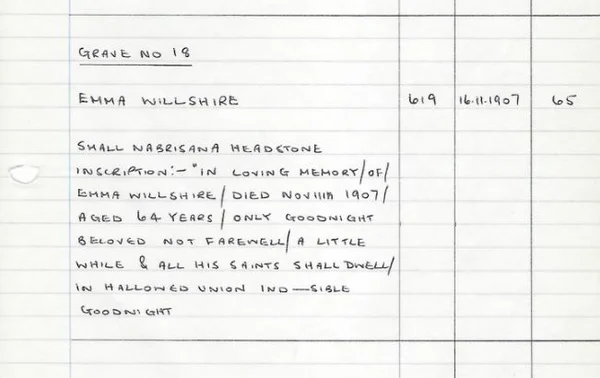 GRAVE NO 18
EMMA WILLSHIRE 619 16.11.1907 65
SMALL NABRISANA HEADSTONE
INSCRIPTION:- "IN LOVING MEMORY/OF/
EMMA WILLSHIRE/ DIED NOV 11th 1907/
AGED 64 YEARS/ ONLY GOODNIGHT
BELOVED NOT FAREWELL/ A LITTLE
WHILE & ALL HIS SAINTS SHALL DWELL/
IN HALLOWED UNION IND—SIBLE
GOODNIGHT